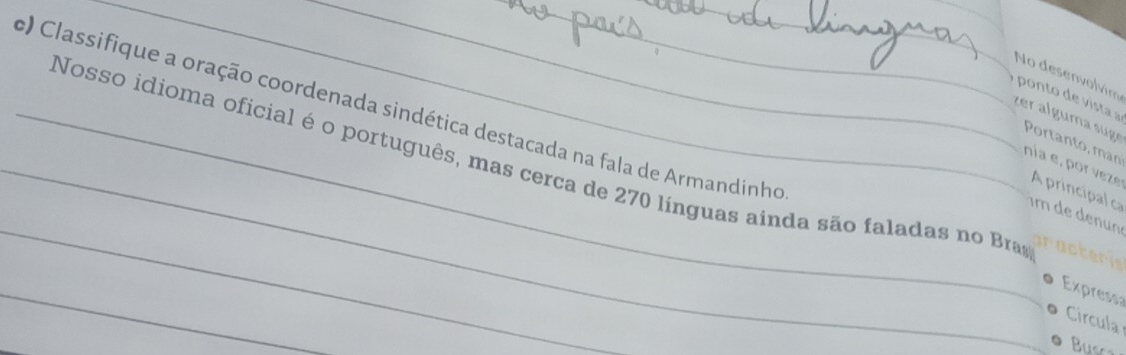 no país.
línguas
c) Classifique a oração coordenada sindética destacada na fala de Armandinho.
Nosso idioma oficial é o português, mas cerca de 270 línguas ainda são faladas no Brasil
No desenvolvime
ponto de vista
zer alguma suge
Portanto, mani
nia e, por vezes
A principal ca
im de denunc
aracterís
• Expressa
• Circula
• Busca